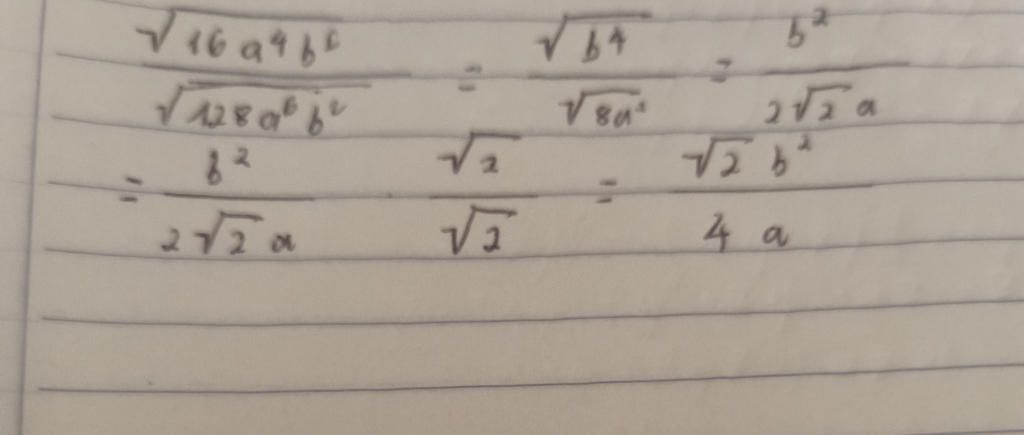 √(16a⁴b⁶) / √(128a⁶b²) = √(b⁴) / √(8a²) = b² / (2√2 a)
= b² / (2√2 a) √2 / √2 = √2 b² / (4 a)